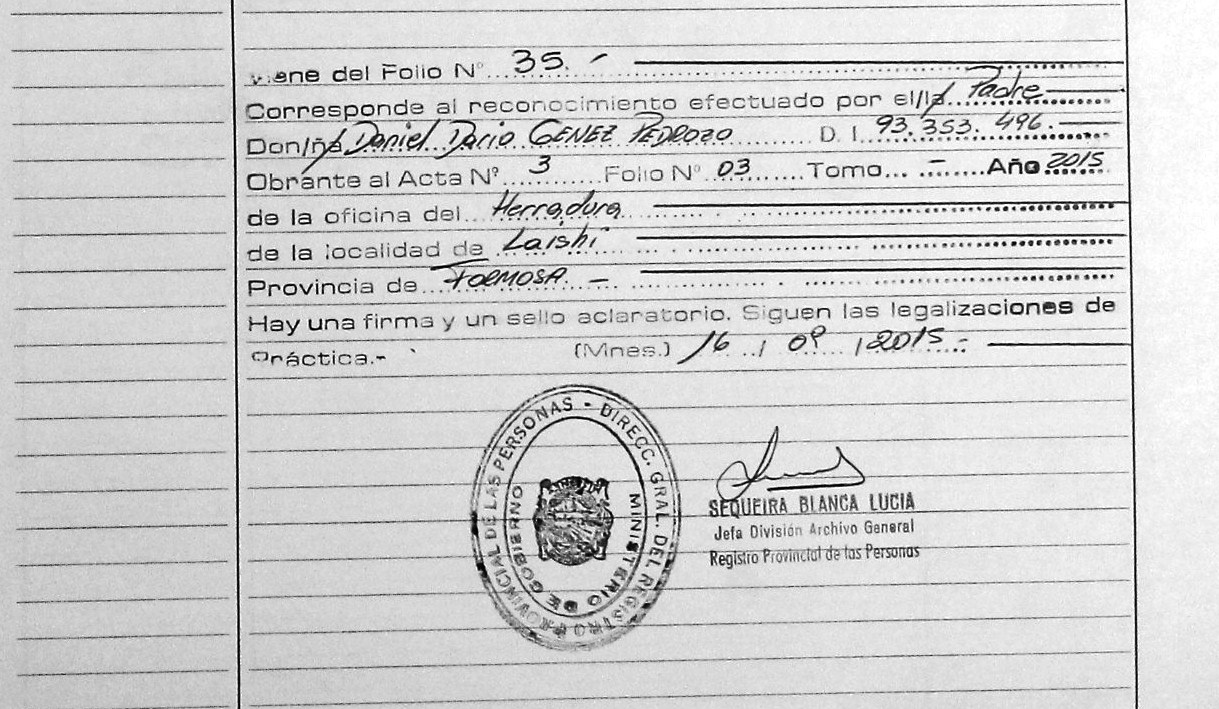 Viene del Folio Nº 35. -
Corresponde al reconocimiento efectuado por el/la Padre
Don/ña Daniel Dario GENEZ PEDROZO D. I. 93.353.496.-
Obrante al Acta Nº 3 Folio Nº 03 Tomo - Año 2015
de la oficina del Herradura
de la localidad de Laishi
Provincia de FORMOSA. -
Hay una firma y un sello aclaratorio. Siguen las legalizaciones de
Práctica.- (Mnes.) 16 / 09 / 2015.-
DIRECC. GRAL. DEL REGISTRO PROVINCIAL DE LAS PERSONAS -
MINISTERIO DE GOBIERNO
SEQUEIRA BLANCA LUCIA
Jefa División Archivo General
Registro Provincial de las Personas